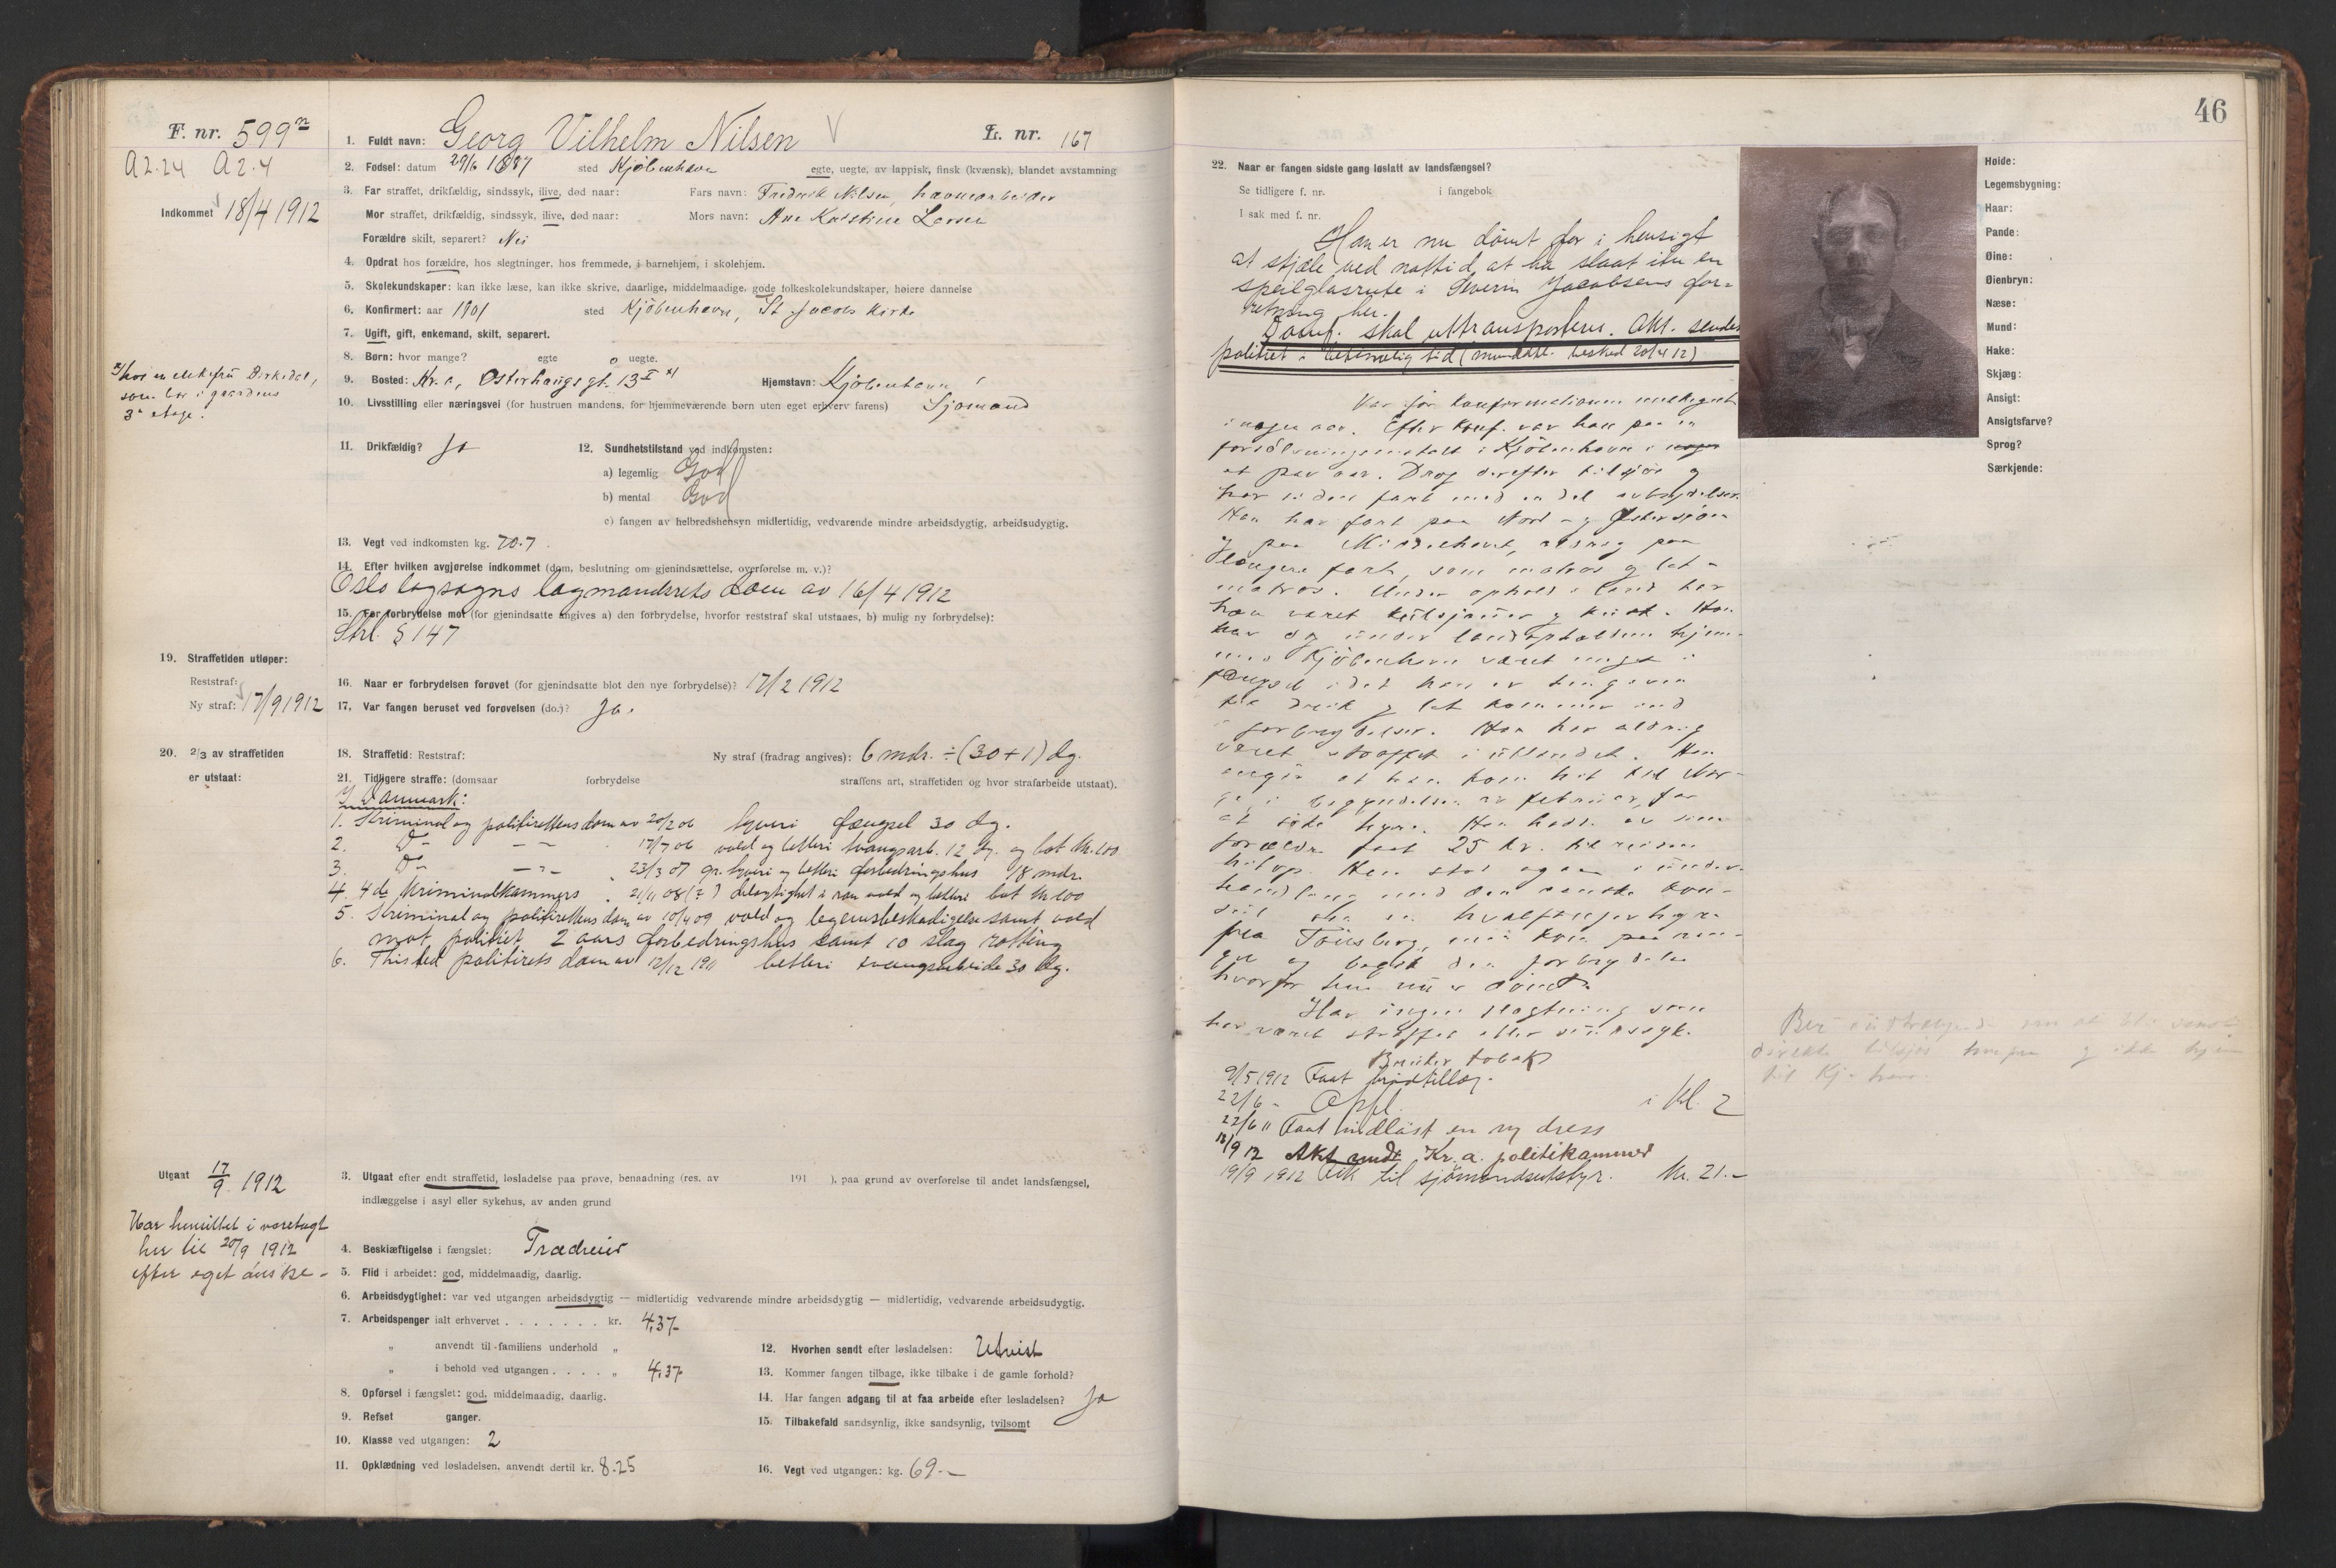 F. nr. 599n
A2.24 A2.4
Indkommet 18/4 1912
1. Fuldt navn: Georg Vilhelm Nilsen
L. nr. 167
2. Fødsel: datum 29/6 1887 sted Kjöbenhavn egte, uegte, av lappisk, finsk (kvænsk), blandet avstamning
3. Far straffet, drikfældig, sindssyk, ilive, død naar: Fars navn: Fredrik Nilsen, havnearbeider
Mor straffet, drikfældig, sindssyk, ilive, død naar: Mors navn: Ane Kristine Larsen
Forældre skilt, separert? Nei
4. Opdrat hos forældre, hos slegtninger, hos fremmede, i barnehjem, i skolehjem.
5. Skolekundskaper: kan ikke læse, kan ikke skrive, daarlige, middelmaadige, gode folkeskolekundskaper, høiere dannelse
6. Konfirmert: aar 1901 sted Kjöbenhavn, St. Jacobs Kirke
7. Ugift, gift, enkemand, skilt, separert.
8. Børn: hvor mange? egte 0 uegte.
9. Bosted: Kr.a, Österhaugsgt. 13 I x) Hjemstavn: Kjöbenhavn
x/ hos en Birkedal,
som bor i gaardens
3die etage.
10. Livsstilling eller næringsvei (for hustruen mandens, for hjemmeværende børn uten eget erhverv farens) Sjömand
11. Drikfældig? Ja
12. Sundhetstilstand ved indkomsten:
a) legemlig God
b) mental God
c) fangen av helbredshensyn midlertidig, vedvarende mindre arbeidsdygtig, arbeidsudygtig.
13. Vegt ved indkomsten kg. 70.7
14. Efter hvilken avgjørelse indkommet (dom, beslutning om gjenindsættelse, overførelse m. v.)?
Oslo lagsogns lagmandsrets dom av 16/4 1912
15. For forbrydelse mot (for gjenindsatte angives a) den forbrydelse, hvorfor reststraf skal utstaaes, b) mulig ny forbrydelse):
Strl. § 147
19. Straffetiden utløper:
Reststraf:
Ny straf: 17/9 1912
16. Naar er forbrydelsen forøvet (for gjenindsatte blot den nye forbrydelse)? 17/2 1912
17. Var fangen beruset ved forøvelsen (do.)? Ja.
20. 2/3 av straffetiden
er utstaat:
18. Straffetid: Reststraf: Ny straf (fradrag angives): 6 mdr. ÷ (30+1) dg.
21. Tidligere straffe: (domsaar forbrydelse straffens art, straffetiden og hvor strafarbeide utstaat).
I Danmark:
1. Kriminal og politirettens dom av 20/2 06 tyveri fængsel 30 dg.
2. Do - - 17/7 06 vold og betleri tvangsarb. 12 dg. og bot kr. 100
3. Do - - 23/3 07 gr. tyveri og betleri forbedringshus 18 mdr.
4. 4de Kriminalkammers 21/11 08 (?) delagtighet i ran vold og betleri bot kr 100
5. Kriminal og politirettens dom av 10/4 09 vold og legemsbeskadigelse samt vold
mot politiet 2 aars forbedringshus samt 10 slag rotting
6. Thisted politirets dom av 12/12 1911 betleri tvangsarbeide 30 dg.
Utgaat 17/9 1912
3. Utgaat efter endt straffetid, løsladelse paa prøve, benaadning (res. av 191 ), paa grund av overførelse til andet landsfængsel,
indlæggelse i asyl eller sykehus, av anden grund
Har hensittet i varetægt
her til 20/9 1912
efter eget önske -
4. Beskjæftigelse i fængslet: Trædreier
5. Flid i arbeidet: god, middelmaadig, daarlig.
6. Arbeidsdygtighet: var ved utgangen arbeidsdygtig — midlertidig vedvarende mindre arbeidsdygtig — midlertidig, vedvarende arbeidsudygtig.
7. Arbeidspenger ialt erhvervet . . . . . . . kr. 4,37
„ anvendt til familiens underhold „
„ i behold ved utgangen . . . . „ 4,37
8. Opførsel i fængslet: god, middelmaadig, daarlig.
9. Refset ganger.
10. Klasse ved utgangen: 2
11. Opklædning ved løsladelsen, anvendt dertil kr. 8.25
12. Hvorhen sendt efter løsladelsen: Utvist
13. Kommer fangen tilbage, ikke tilbake i de gamle forhold?
14. Har fangen adgang til at faa arbeide efter løsladelsen? Ja
15. Tilbakefald sandsynlig, ikke sandsynlig, tvilsomt
16. Vegt ved utgangen: kg. 69.-
46
22. Naar er fangen sidste gang løslatt av landsfængsel?
Se tidligere f. nr. i fangebok
I sak med f. nr.
Han er nu dömt for i hensigt
at stjæle ved nattetid at ha slaat itu en
speilglasrute i Severin Jacobsens for-
retning her.
Domf. skal uttransporteres. Akt. sendes
politiet i betimelig tid (mundtl. besked 20/4 12)
Var för konfirmationen
i nogen aar. Efter konf. var han paa en
i Kjöbenhavn i nogen
et par aar. Drog derefter tilsjös og
har siden fart med en del avbrydelser.
Han har fart paa Nord- og Östersjöen
og paa Middelhavet, paa
længere fart, som matros og let-
matros. Under ophold i land har
han været kulsjauer og kusk. Han
har og under landopholdene hjem-
me i Kjöbenhavn været meget i
fængsel idet han er hengiven
til drik og let kommer ind
i forbrydelser. Han har aldrig
været straffet i utlandet. Han
angir at han kom hit til Nor-
ge i begyndelsen av februar, for
at söke hyre. Han hadde av sine
forældre faat 25 kr. til reisen
hitop. Han stod ogsaa i under-
handling med den danske kon-
sul om en hvalfangerhyre
fra Tönsberg, men kom paa ran-
gel og begik den forbrydelse
hvorfor han nu er dömt.
Har ingen slegtning som
har været straffet eller sindssyk.
Bruker tobak
9/5 1912 Faat brödtillæg.
22/6 - Opfl. i Kl. 2
22/6 " Faat indlöst en ny dress
13/9 12 Akt sendt Kr.a. politikammer
19/9 1912 Fik til sjömandsutstyr. Kr. 21.-
Høide:
Legemsbygning:
Haar:
Pande:
Øine:
Øienbryn:
Næse:
Mund:
Hake:
Skjæg:
Ansigt:
Ansigtsfarve?
Sprog?
Særkjende:
Ber om at bli sendt
direkte tilsjös og ikke hjem
til Kj.havn.